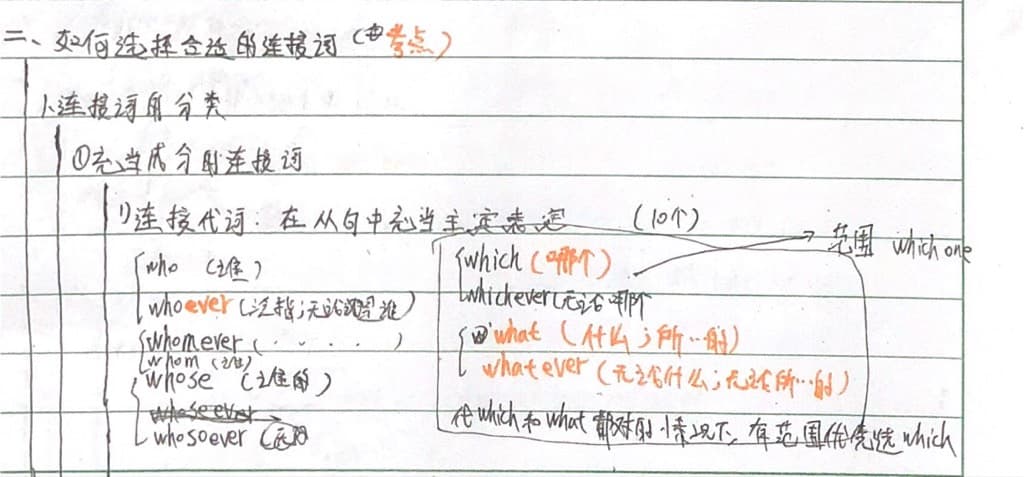 二、如何选择合适的连接词（考点）
1、连接词的分类
①充当成分的连接词
1) 连接代词：在从句中充当主宾表定 （10个）
范围 which one
who （谁）
whoever（泛指；无论谁）
whomever（ . . . . ）
whom（谁）
whose （谁的）
whosever
whosoever
which（哪个）
whichever（无论哪个
what（什么；所…的）
whatever（无论什么；无论所…的）
在which和what都对的情况下，有范围优先选which